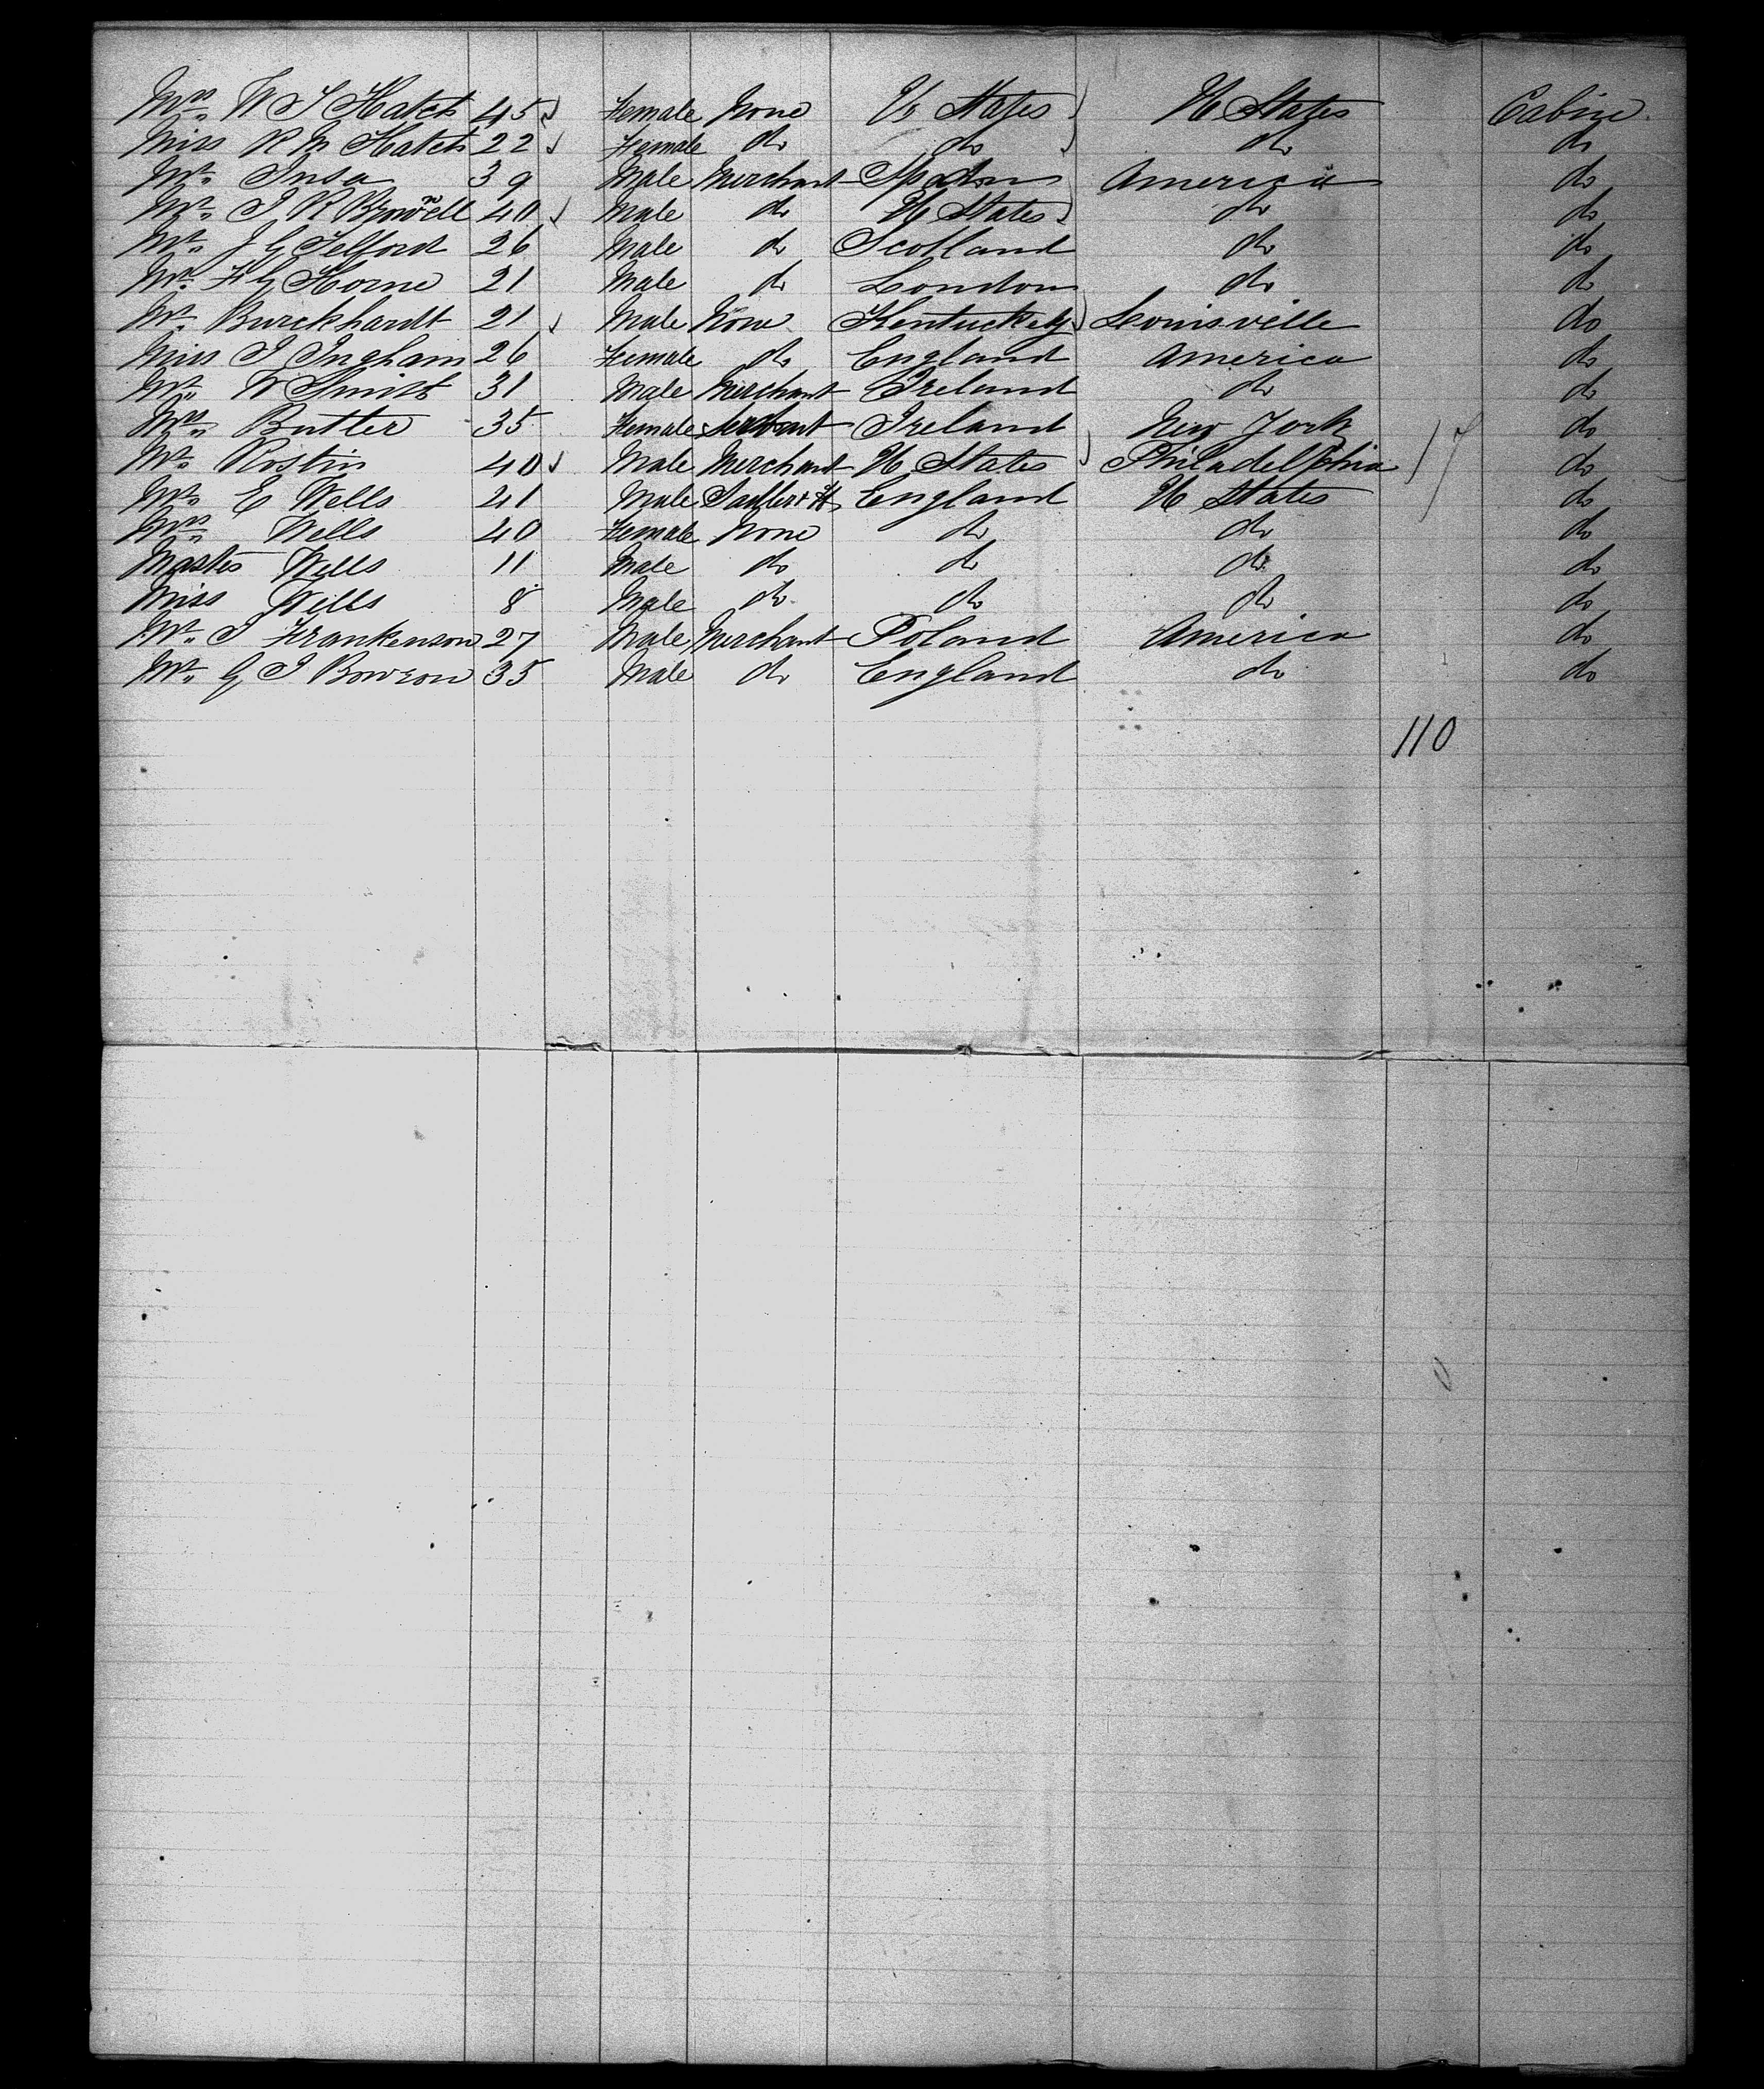 Mrs. W S Hatch 45 Female None U States U States Cabin.
Miss R M Hatch 22 Female do do do do
Mr. Insa 39 Male Merchant America do
Mr. J R Brownell 40 Male do U States do do
Mr. J G Telford 26 Male do Scotland do do
Mr. H G Horne 21 Male do London do do
Mr. Burckhardt 21 Male None Kentucky Louisville do
Miss J Ingham 26 Female do England America do
Mr. W Smith 31 Male Merchant Ireland do do
Mrs. Butler 35 Female Servant Ireland New York do
Mr. Rostin 40 Male Merchant U States Philadelphia 17 do
Mr. E Wells 41 Male England U States do
Mrs. Wells 40 Female None do do do
Master Wells 11 Male do do do do
Miss Wells 8 Male do do do do
Mr. J Frankenson 27 Male Merchant Poland America do
Mr. G J Bowron 35 Male do England do do
110